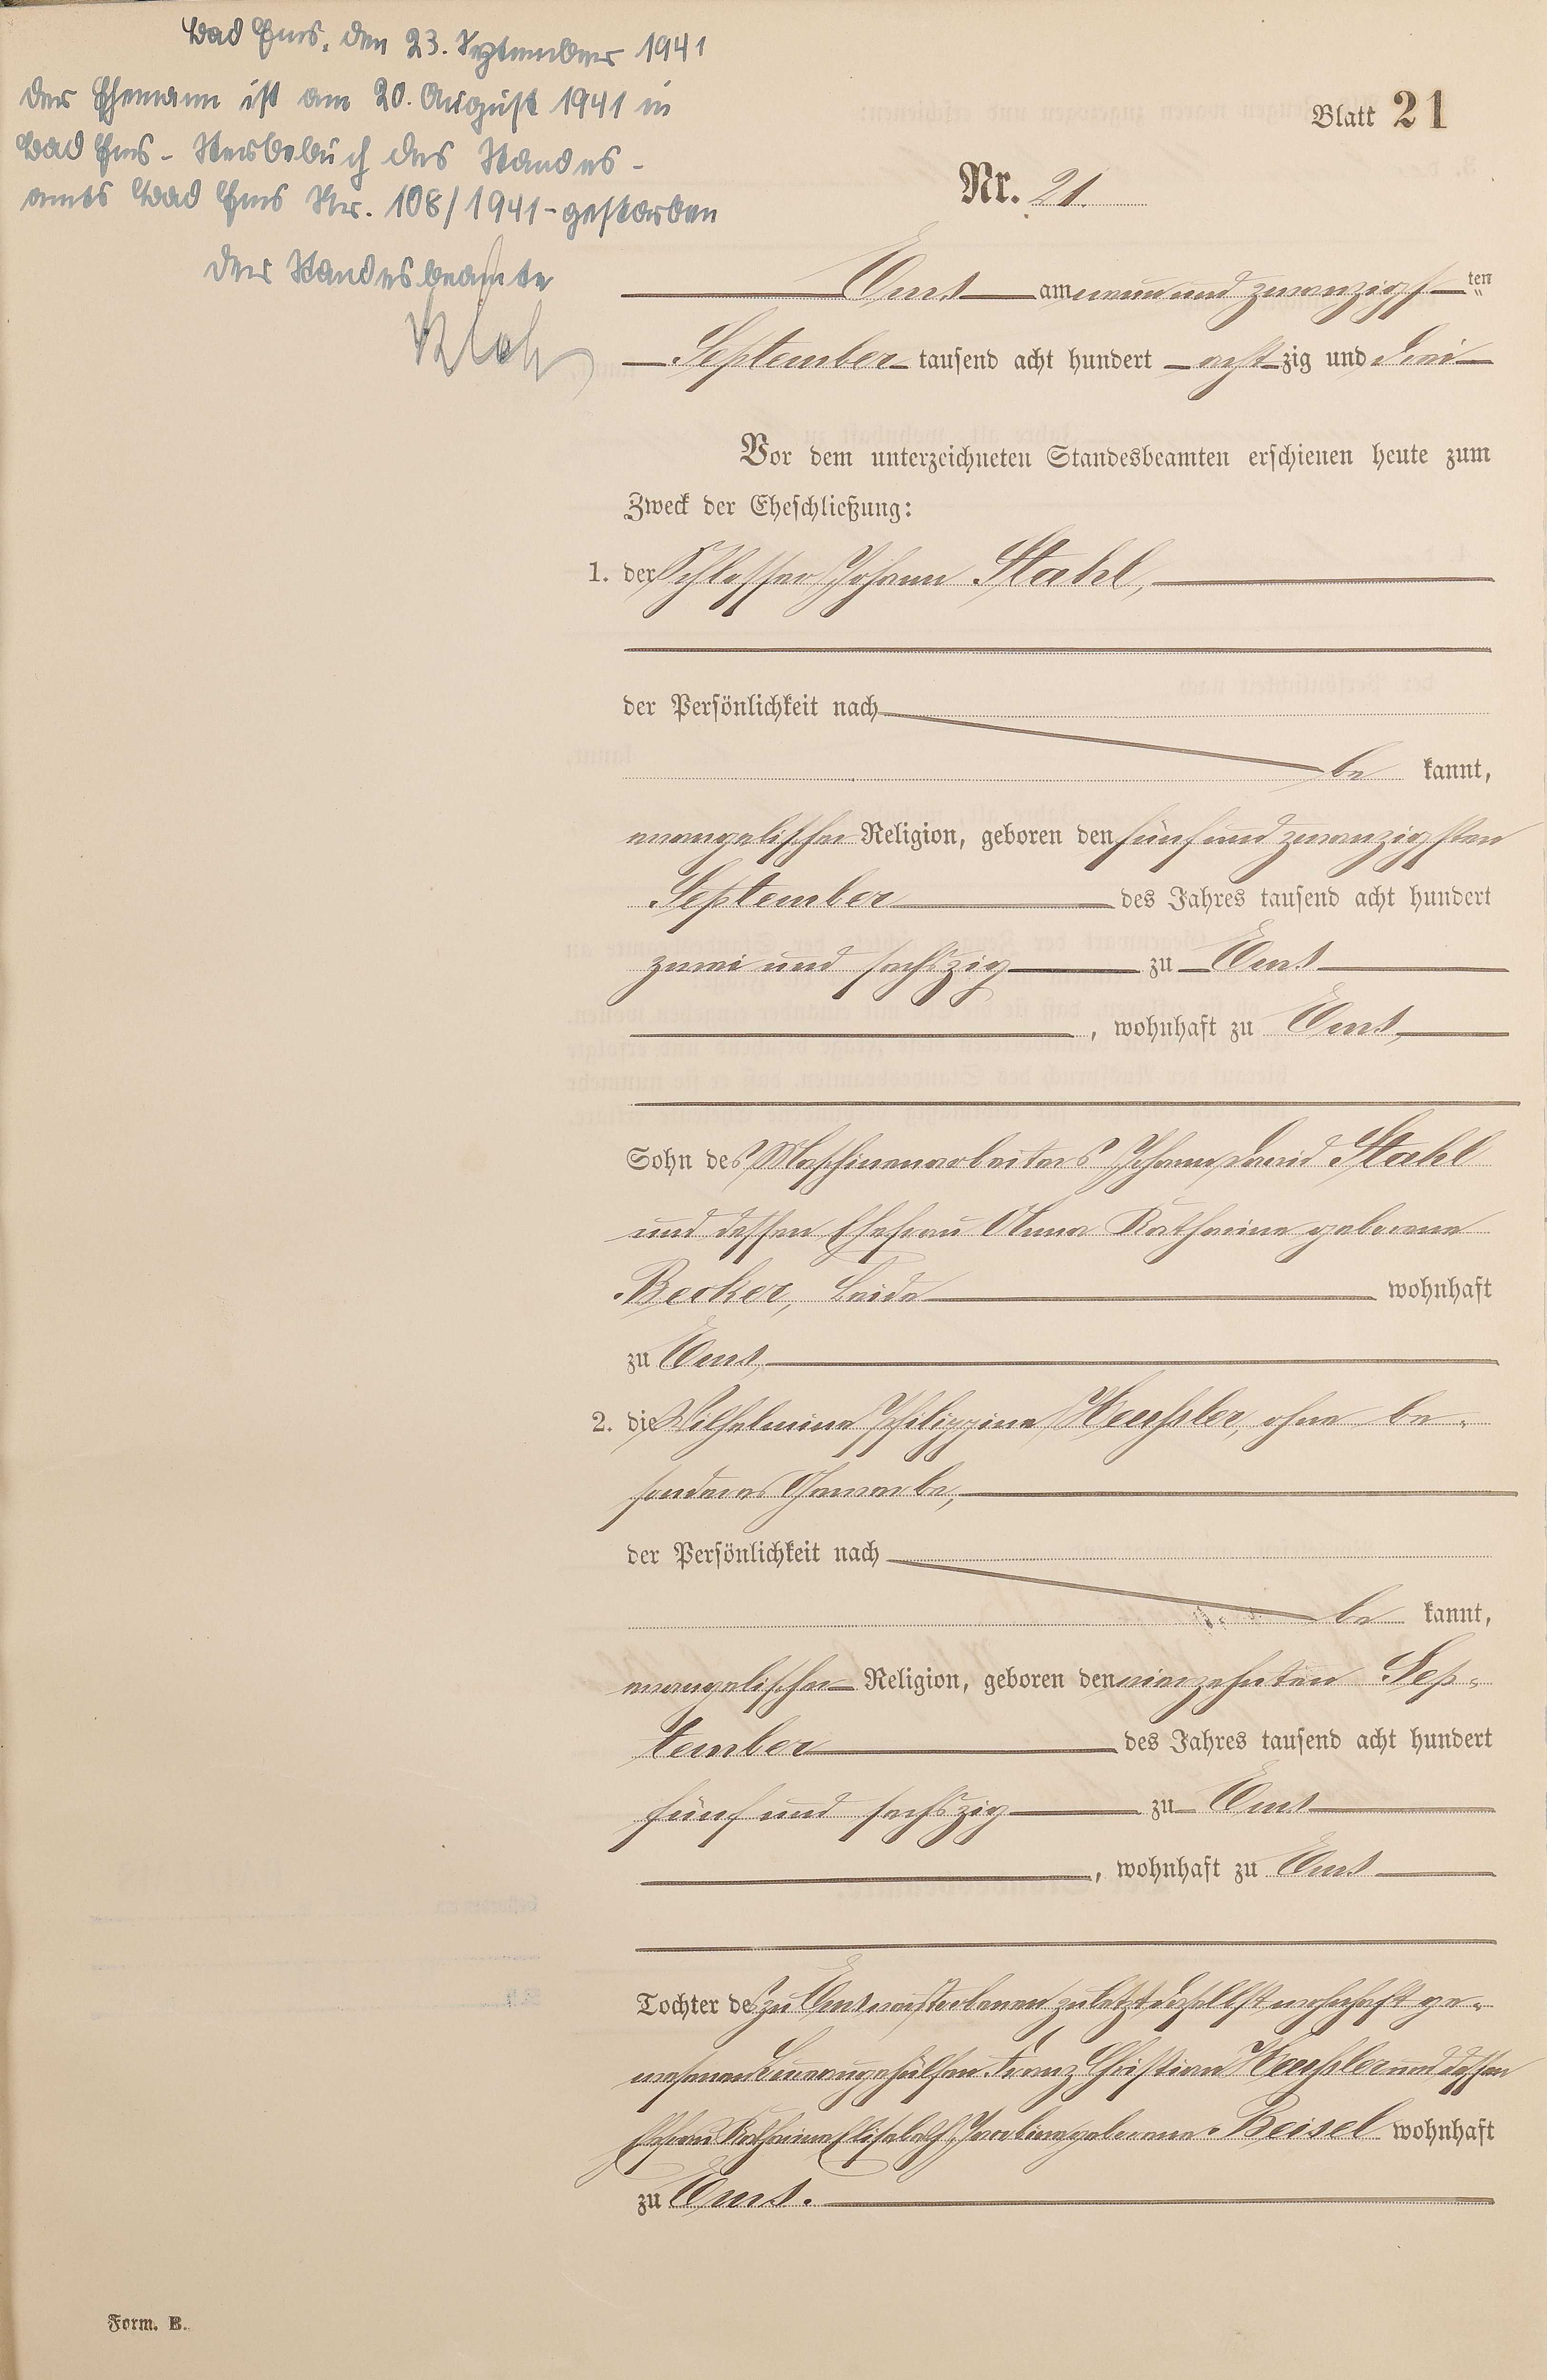 Bad Ems, den 23. September 1941
Der Ehemann ist am 20. August 1941 in
Bad Ems - Sterbebuch des Standes-
amts Bad Ems Nr. 108/1941 - gestorben
Der Standesbeamte
Blatt 21
Nr. 21.
Ems am neun und zwanzigsten
September tausend acht hundert achtzig und drei
Vor dem unterzeichneten Standesbeamten erschienen heute zum
Zweck der Eheschließung:
1. der Schlosser Johann Stahl,
der Persönlichkeit nach
be kannt,
evangelischer Religion, geboren den fünf und zwanzigsten
September des Jahres tausend acht hundert
zwei und sechszig zu Ems
, wohnhaft zu Ems,
Sohn des Maschinenarbeiters Johann David Stahl
und dessen Ehefrau Anna Katharine geborene
Becker, beide wohnhaft
zu Ems,
2. die Wilhelmine Philippine Heußler, ohne be-
sonderes Gewerbe,
der Persönlichkeit nach
be kannt,
evangelischer Religion, geboren den vierzehnten Sep-
tember des Jahres tausend acht hundert
fünf und sechszig zu Ems
, wohnhaft zu Ems
Tochter des zu Ems verstorbenen zuletzt daselbst wohnhaft ge-
wesenen Franz Christian Heußler und dessen
Ehefrau Katharine Elisabeth geborene Beisel wohnhaft
zu Ems.
Form. B.